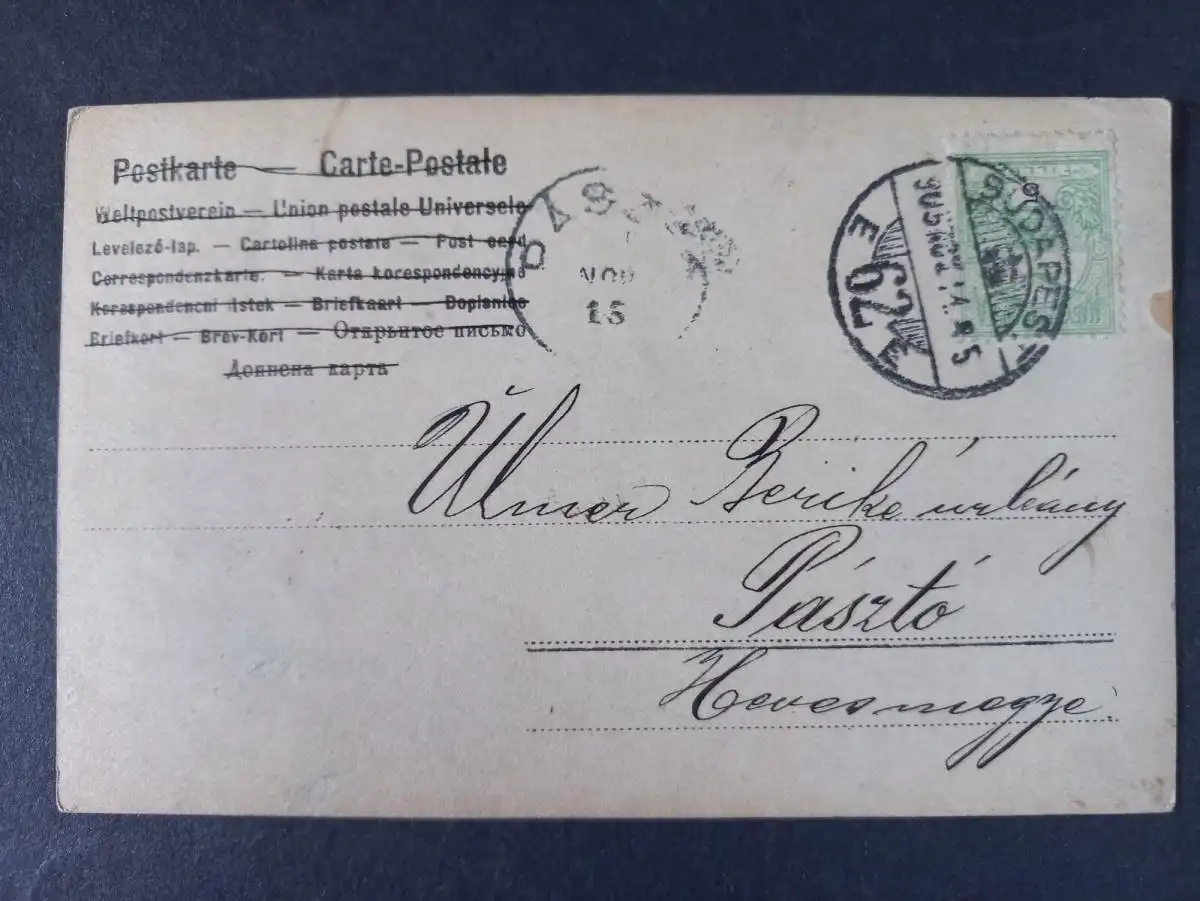 Postkarte — Carte-Postale
Weltpostverein — Union postale Universele
Levelező-lap. — Cartolina postale — Post card
Correspondenzkarte. — Karta korespondencyjna
Korespondencni listek — Briefkaart — Dopisnice
Briefkort — Brev-Kort — Открытое письмо
Дописна карта
NOV
15
BUDAPEST
62
Ülmer Berike úrleány
Pásztó
Hevesmegye